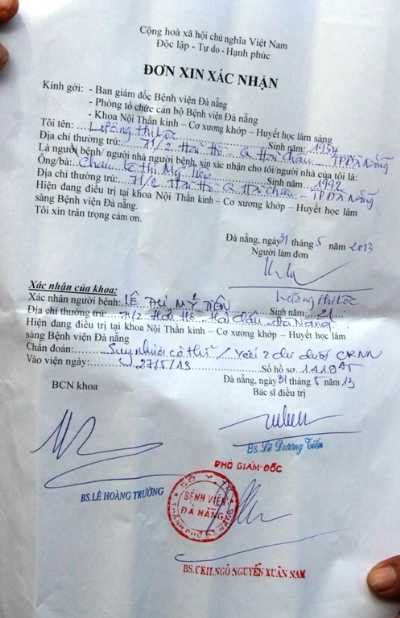 Cộng hoà xã hội chủ nghĩa Việt Nam
Độc lập - Tự do - Hạnh phúc
ĐƠN XIN XÁC NHẬN
Kính gởi: - Ban giám đốc Bệnh viện Đà nẵng
- Phòng tổ chức cán bộ Bệnh viện Đà nẵng
- Khoa Nội Thần kinh – Cơ xương khớp – Huyết học lâm sàng
Tôi tên: Sinh năm: 1954
Địa chỉ thường trú: 71/2 Hải Hồ Q Hải Châu TP Đà Nẵng
Là người bệnh/ người nhà người bệnh, xin xác nhận cho tôi/người nhà của tôi là:
Ông/bà: Cháu Lê Thị Mỹ Tiên Sinh năm 1992
Địa chỉ thường trú: 71/2 Hải Hồ Q Hải Châu TP Đà Nẵng
Hiện đang điều trị tại khoa Nội Thần Kinh – Cơ xương khớp – Huyết học lâm
sàng Bệnh viện Đà nẵng.
Tôi xin trân trọng cám ơn.
Đà nẵng, ngày 31 tháng 5 năm 2013
Người làm đơn
Xác nhận của khoa:
Xác nhận người bệnh: LÊ THỊ MỸ TIÊN Sinh năm: 21
Địa chỉ thường trú: 71/2 Hải Hồ - Hải Châu - Đà Nẵng
Hiện đang điều trị tại khoa Nội Thần Kinh – Cơ xương khớp – Huyết học lâm
sàng Bệnh viện Đà Nẵng
Chẩn đoán: Suy nhược cơ thể / Yếu 2 chi dưới CRNN
Vào viện ngày: 27/5/13 Số hồ sơ
Đà nẵng, ngày 31 tháng 5 năm 13
BCN khoa Bác sĩ điều trị
BS. Lê Dương Tiến
BS. LÊ HOÀNG TRƯỜNG
PHÓ GIÁM ĐỐC
SỞ Y TẾ
BỆNH VIỆN
ĐÀ NẴNG
BS.CKII. NGÔ NGUYỄN XUÂN NAM